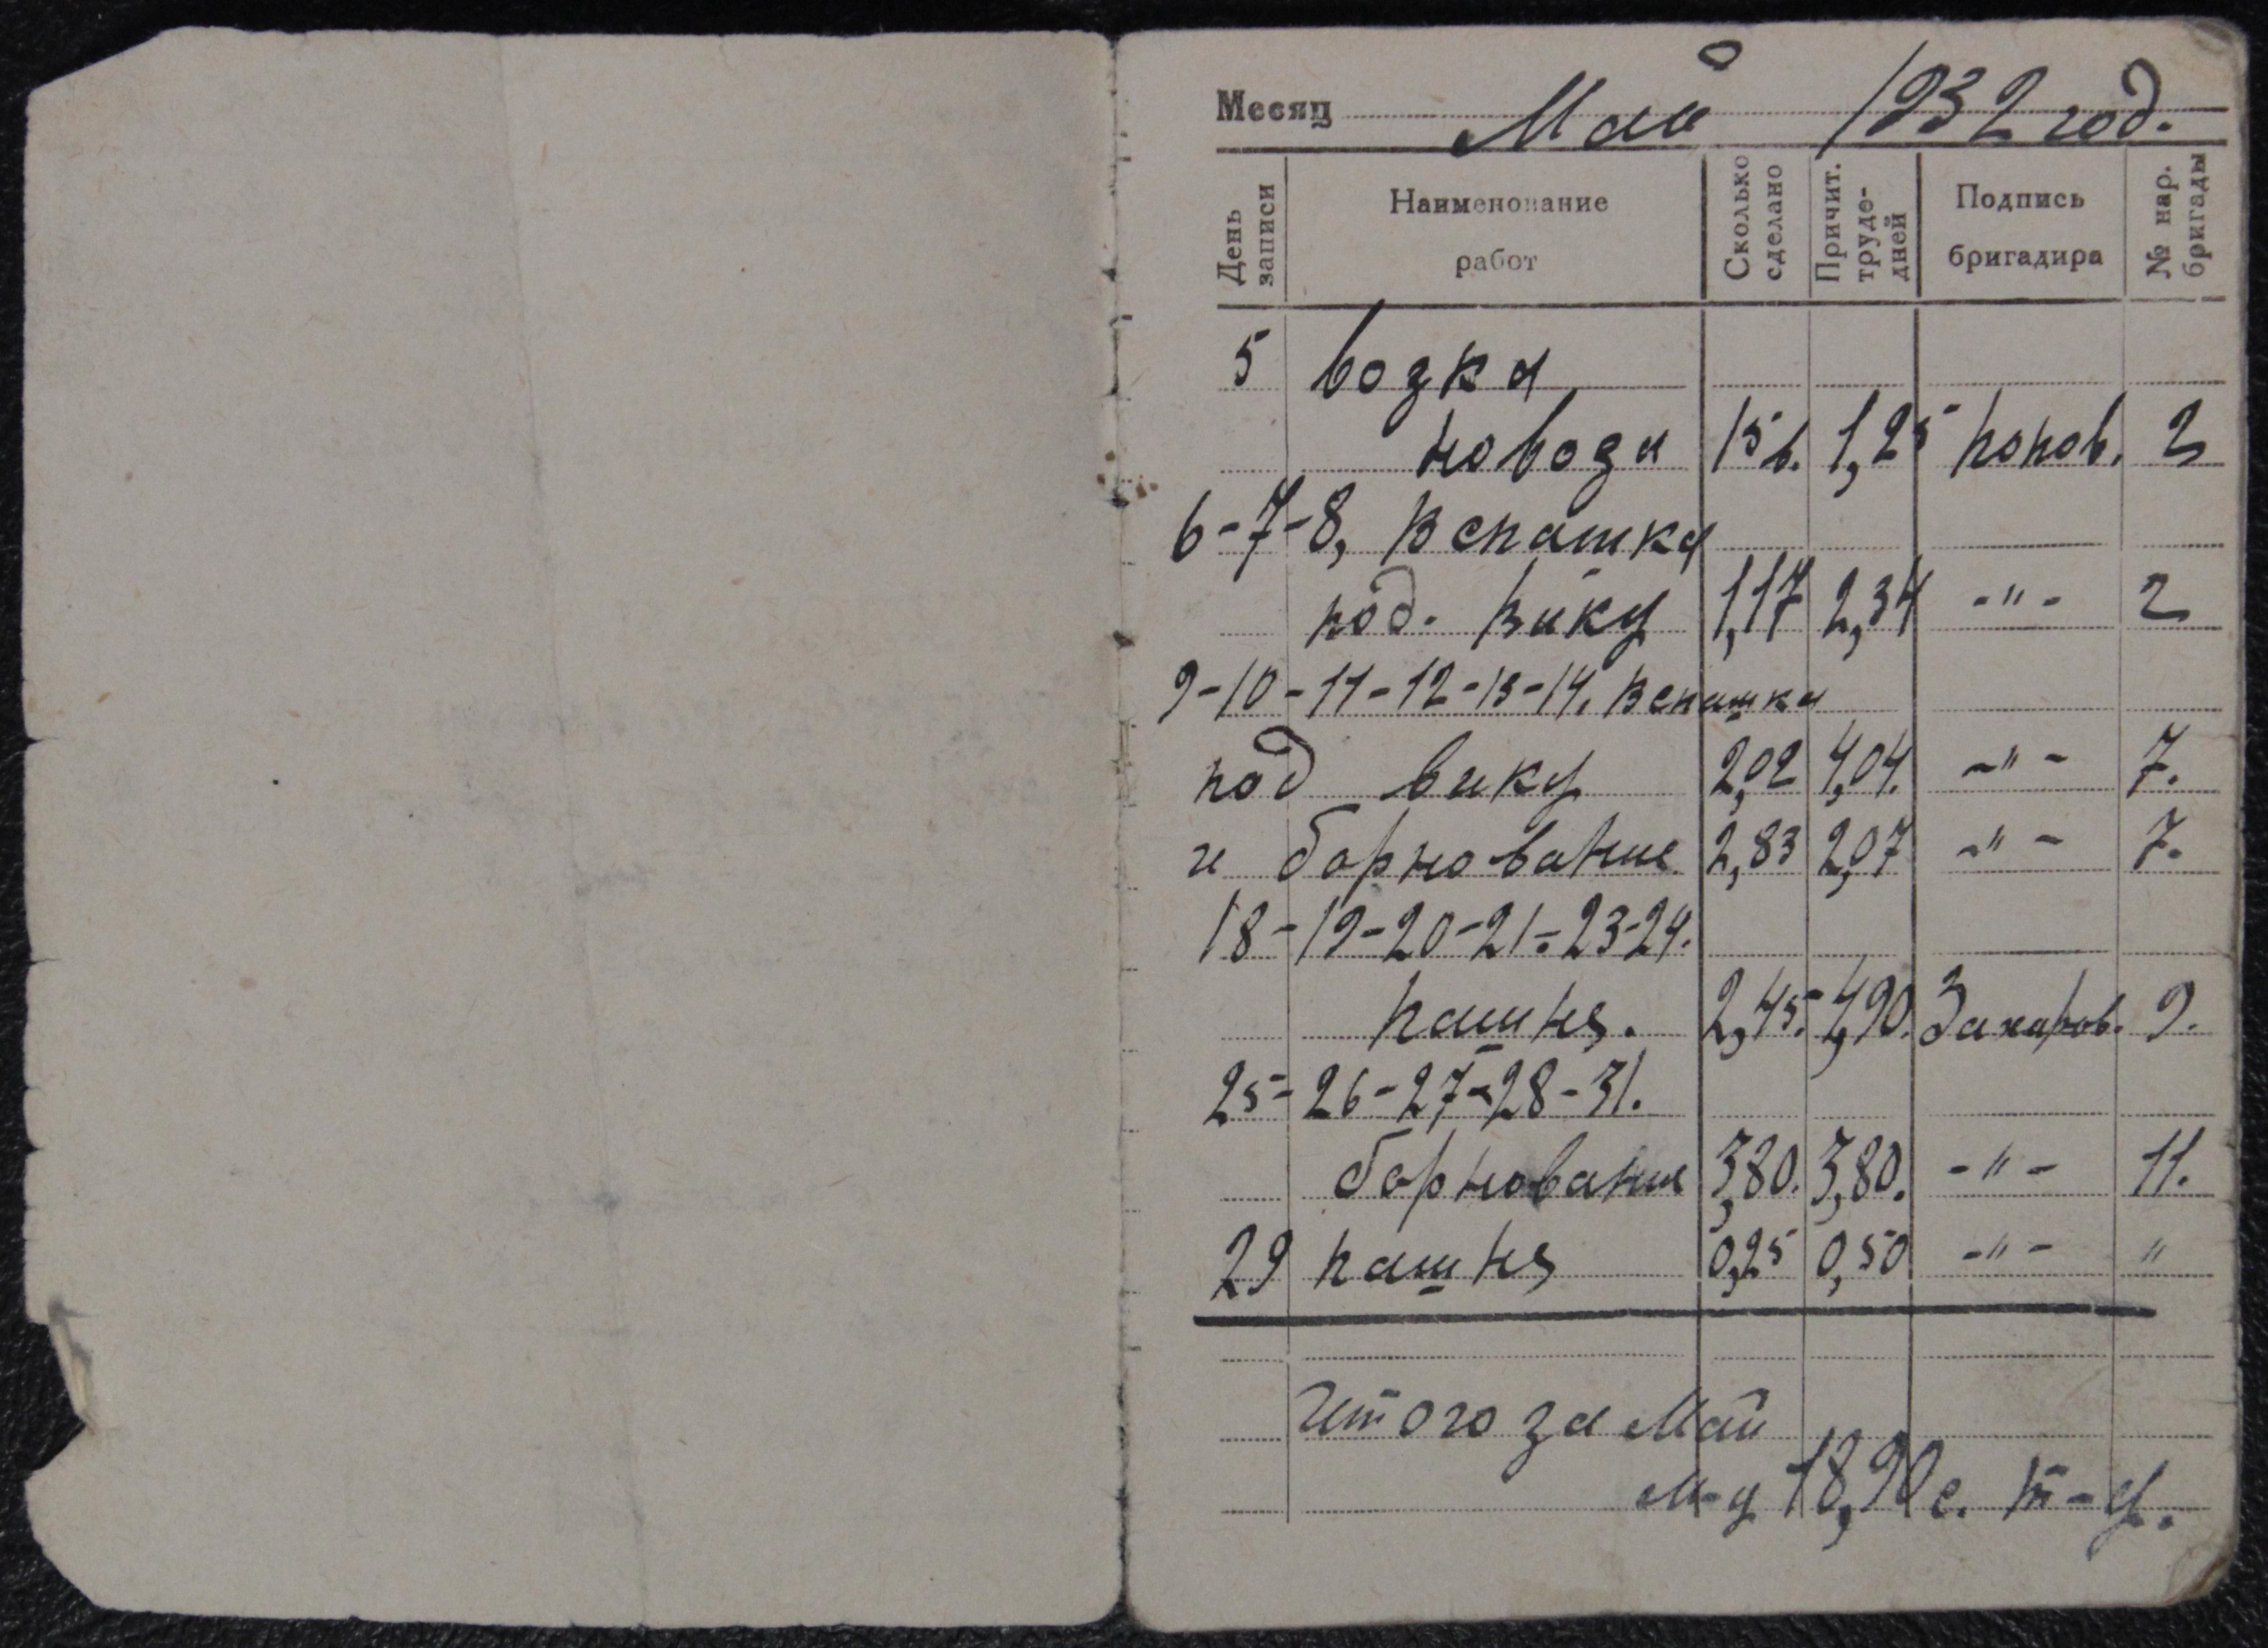 Месяц Май 1932 год.
День записи Наименование работ Сколько сделано Причит. трудо-дней Подпись бригадира № нар. бригады
5 возка
новоза 15 в. 1,25 Попов. 2
6-7-8, Вспашка
под. Вику 1,17 2,34 -"- 2
9-10-11-12-13-14. Вспашка
под вику 2,02 4,04. -"- 7.
и борнование 2,83 2,07 -"- 7.
18-19-20-21-23-24.
пашня. 2,45. 4,90. Захаров. 9.
25-26-27-28-31.
борнование 3,80. 3,80. -"- 11.
29 пашня 0,25 0,50 -"- "
Итого за Май
м-ц 18,90 с. т-д.